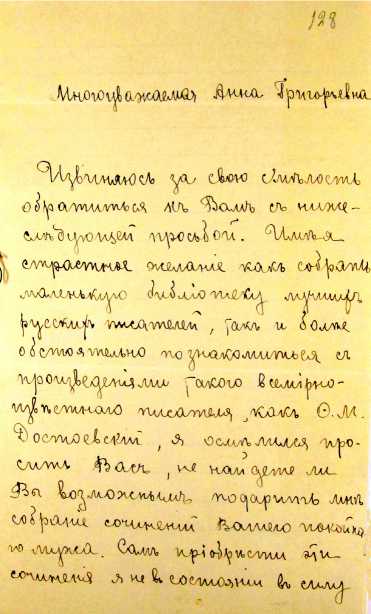 128
Многоуважаемая Анна Григорьевна
Извиняюсь за свою смѣлость
обратиться къ Вамъ съ ниже-
слѣдующей просьбой. Имѣя
страстное желаніе какъ собрать
маленькую библіотеку лучшихъ
русскихъ писателей, такъ и болѣе
обстоятельно познакомиться съ
произведеніями такого всемірно-
извѣстнаго писателя, какъ Ѳ. М.
Достоевскій, я осмѣлился про-
сить Васъ, не найдете ли
Вы возможнымъ подарить мнѣ
собраніе сочиненій Вашего покойна-
го мужа. Самъ пріобрѣсти эти
сочиненія я не въ состояніи въ силу